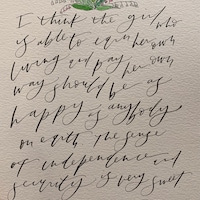 I think the girl who
is able to earn her own
living and pay her own
way should be as
happy as anybody
on earth. The sense
of independence and
security is very sweet